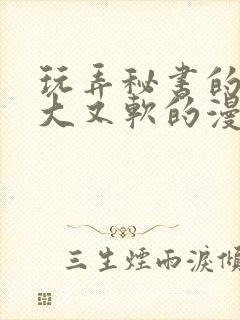 玩弄秘书的
大又軟的漫
三生煙雨淚傾